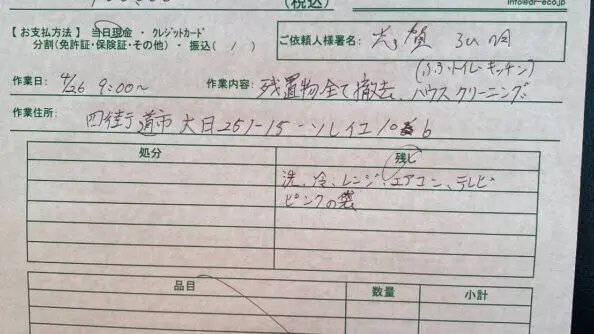 (税込)
info@dr-eco.jp
【お支払方法】 当日現金・クレジットカード
分割(免許証・保険証・その他)・振込( / )
ご依頼人様署名:
(ふろ・トイレ・キッチン)
作業日: 4/26 9:00〜 作業内容: 残置物全て撤去、ハウスクリーニング
作業住所: 四街道市大日251-15-ソレイユ10 6
処分 残し
洗、冷、レンジ、エアコン、テレビ
ピンクの袋
品目 数量 小計